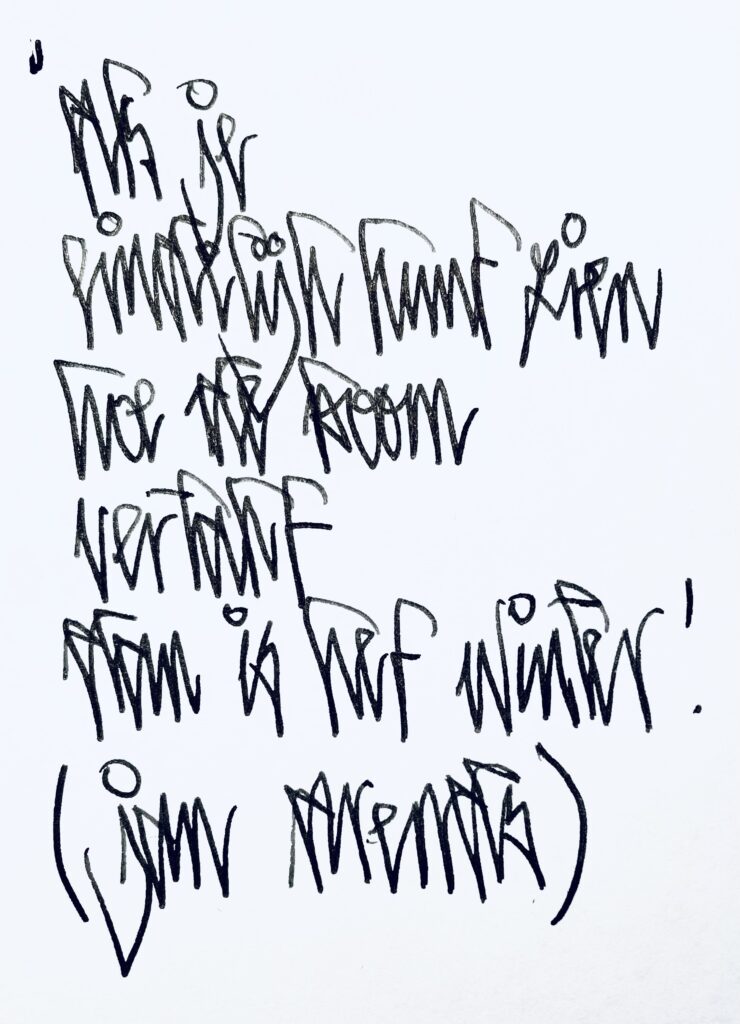 'als je
eindelijk kunt zien
hoe die boom
vertakt
dan is het winter'.
(jan arends)